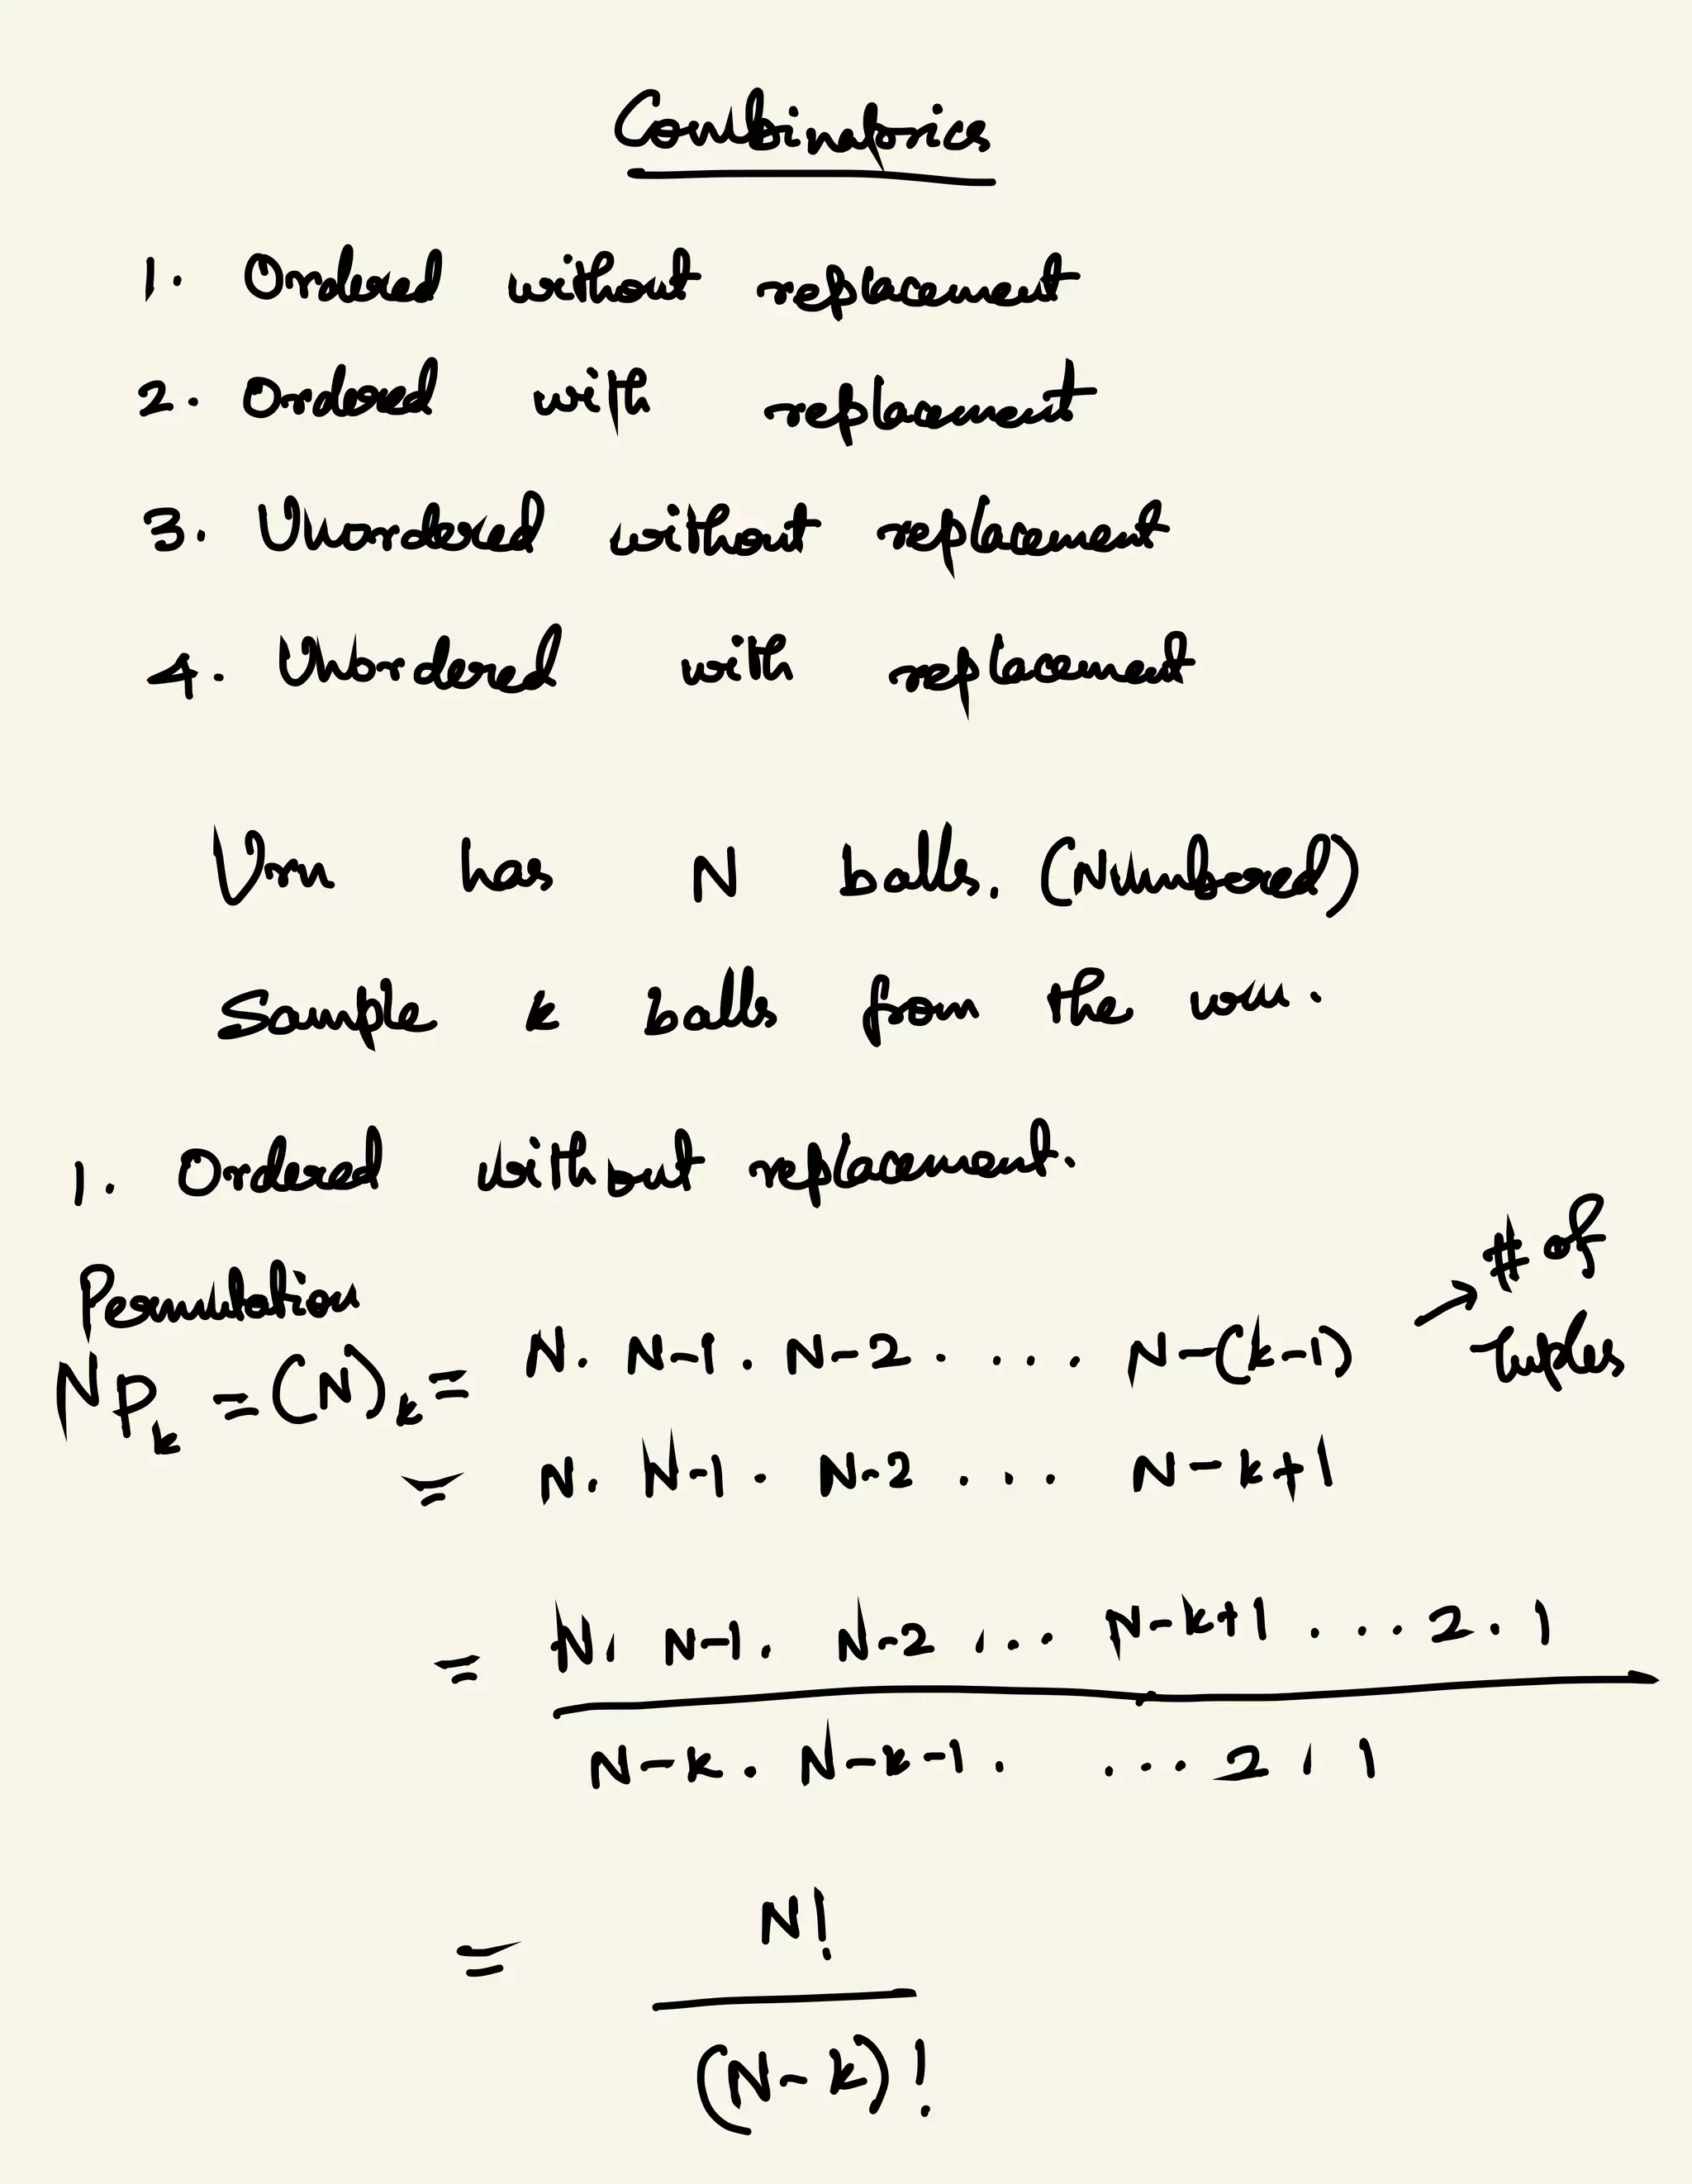 Combinatorics
1. Ordered without replacement
2. Ordered with replacement
3. Unordered without replacement
4. Unordered with replacement
Urn has N balls. (Numbered)
Sample k balls from the urn.
1. Ordered without replacement.
Permutation
NPk = (N)k = N. N-1. N-2. ... N-(k-1) → # of tuples
= N. N-1. N-2 ... N-k+1
= N. N-1. N-2 ... N-k+1 ... 2.1
N-k. N-k-1. ... 2.1
= N!
(N-k)!